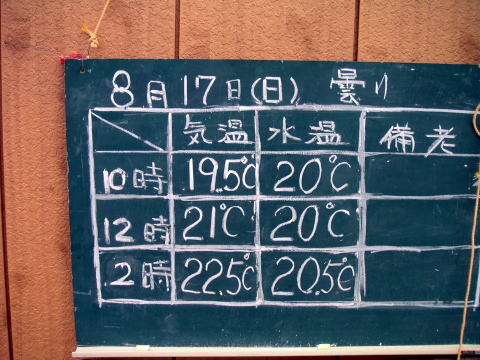 8月17日(日) 曇り
気温 水温 備考
10時 19.5℃ 20℃
12時 21℃ 20℃
2時 22.5℃ 20.5℃